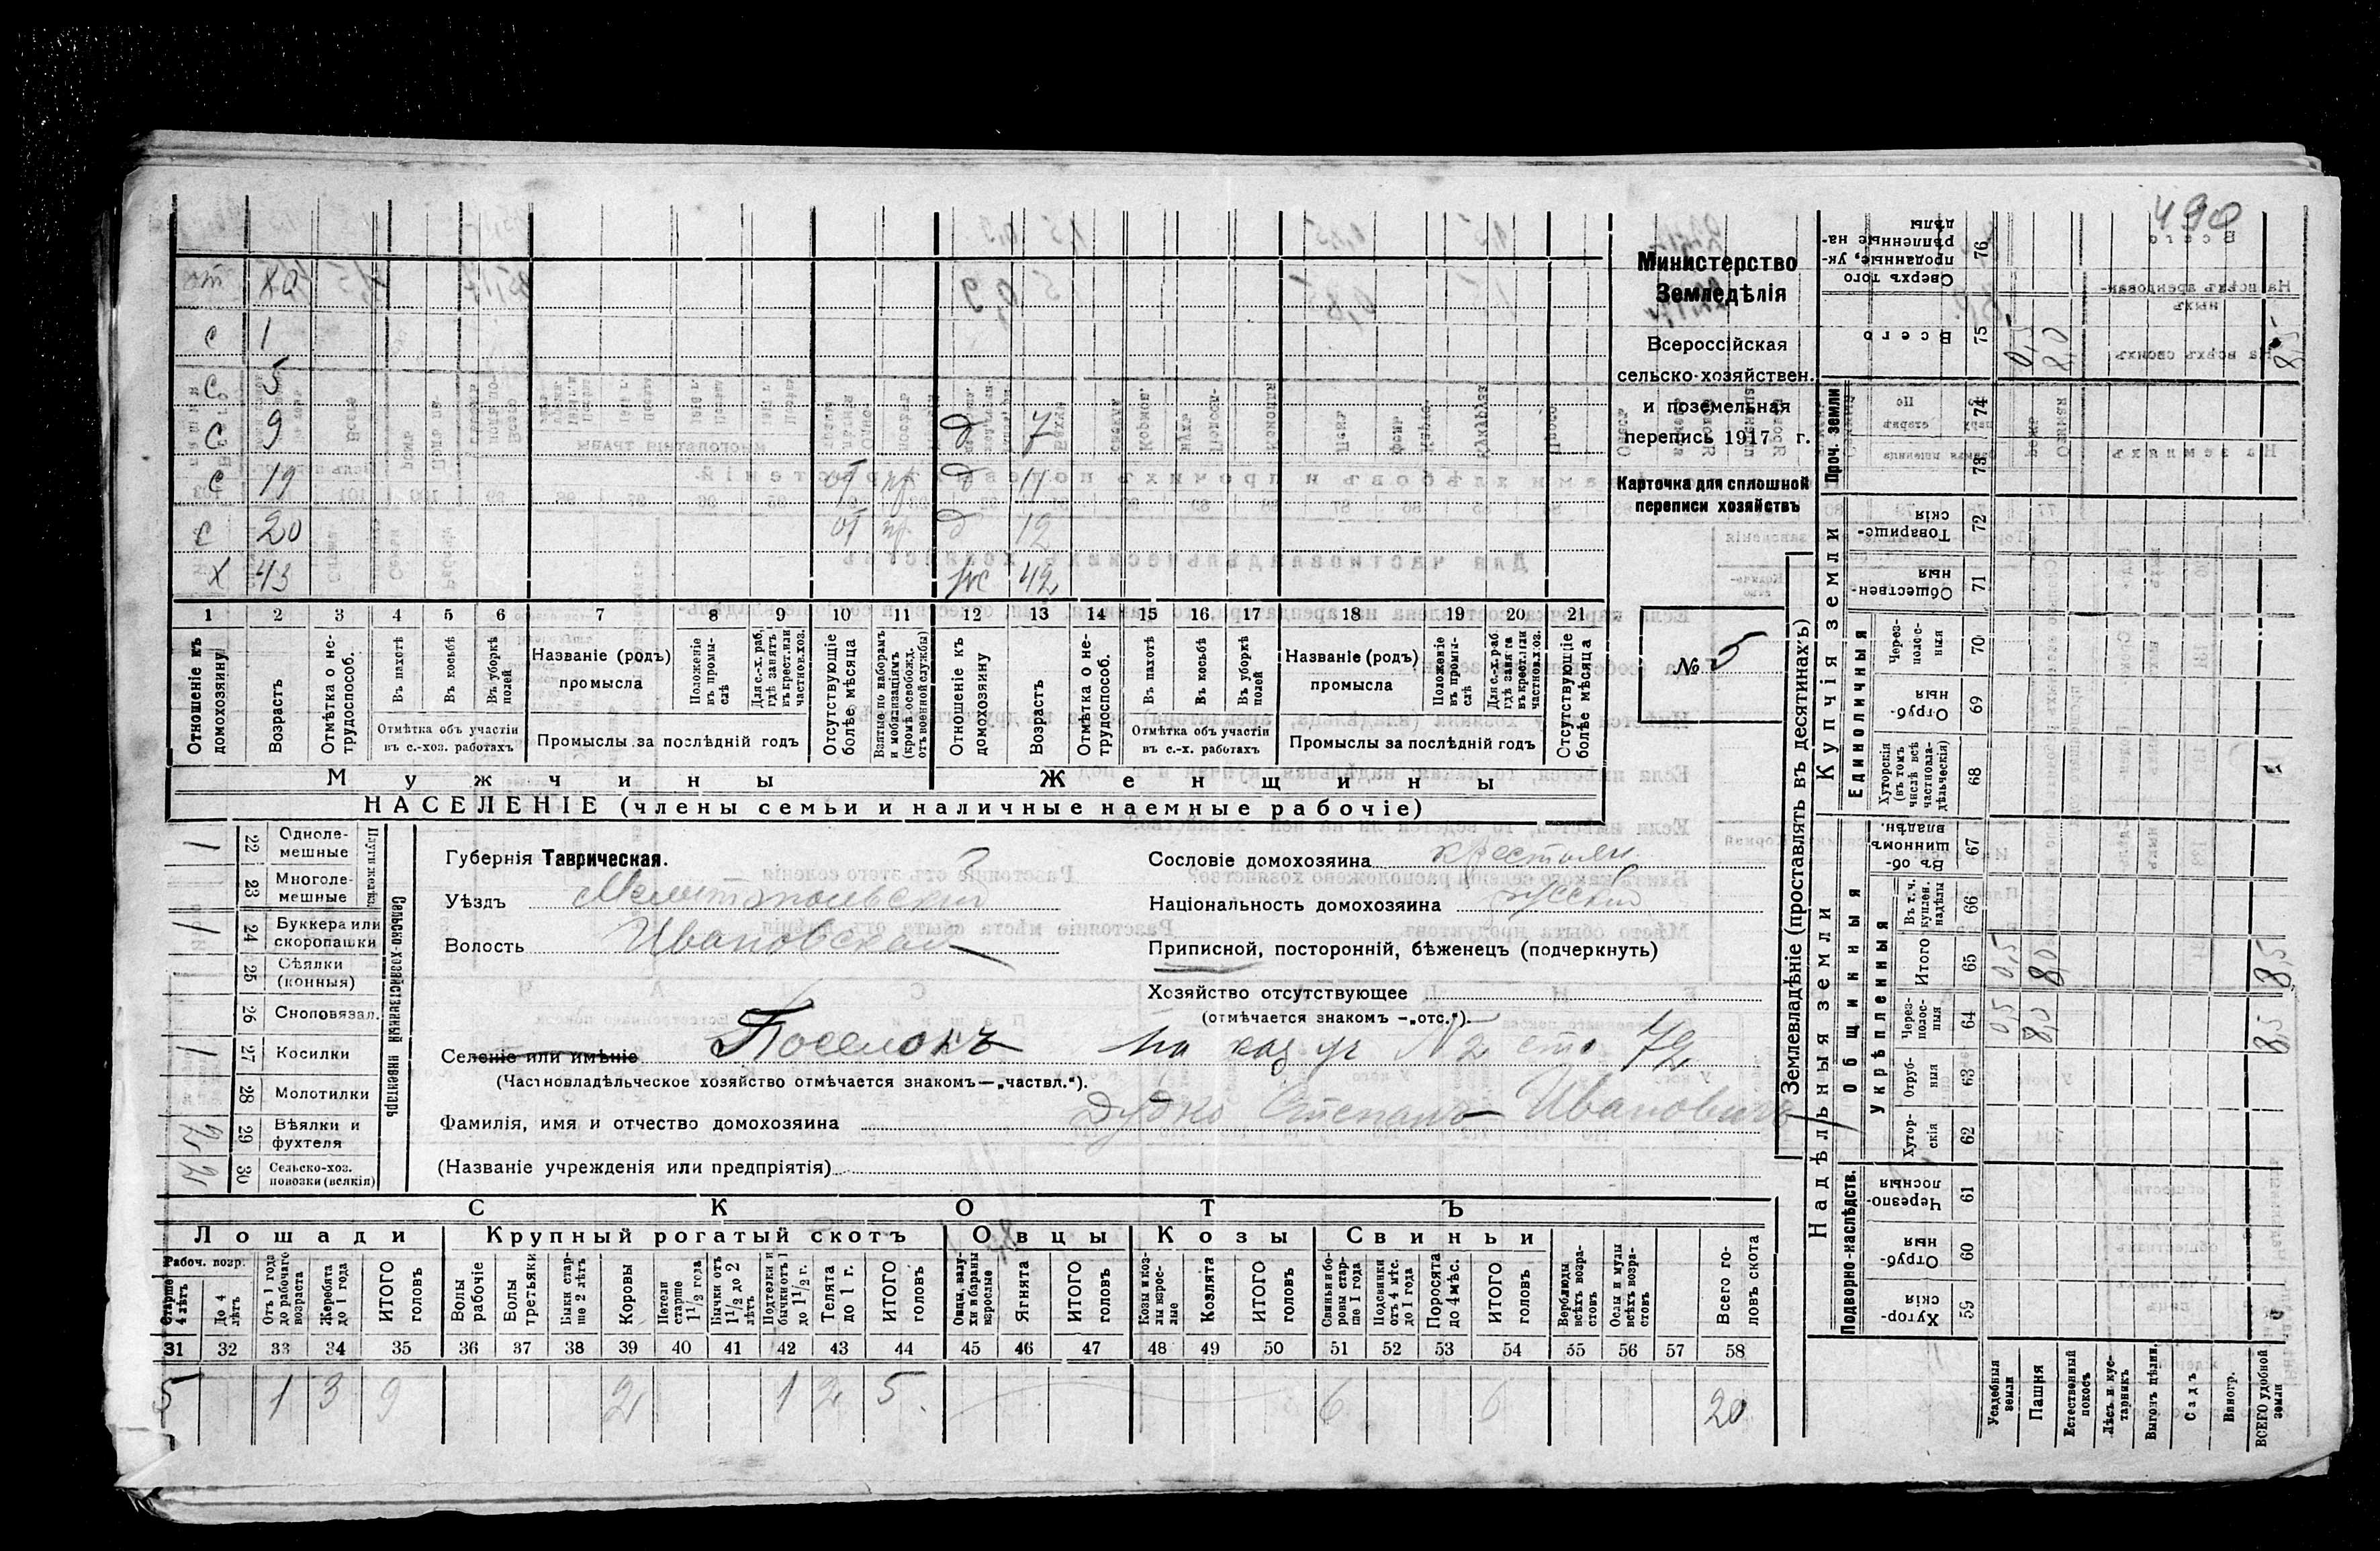 490
Министерство
Земледѣлія
Всероссійская
сельско-хозяйствен.
и поземельная
перепись 1917 г.
Карточка для сплошной
переписи хозяйствъ
№ 5
с 1
с 5
с 9 д 7
с 19 от д 11
с 20 от д 12
х 43 ж 42
1 2 3 4 5 6 7 8 9 10 11 12 13 14 15 16 17 18 19 20 21
Отношеніе къ домохозяину
Возрастъ
Отмѣтка о не-трудоспособ.
Въ пахотѣ
Въ косьбѣ
Въ уборкѣ полей
Отмѣтка объ участіи въ с.-хоз. работахъ
Названіе (родъ) промысла
Положеніе въ промы-слѣ
Для с.-х. раб. гдѣ занятъ въ крест. или частнов. хоз.
Промыслы за послѣдній годъ
Отсутствующіе болѣе мѣсяца
Взятые по наборамъ и мобилизаціямъ (кромѣ освобожд. отъ военной службы)
Отношеніе къ домохозяину
Возрастъ
Отмѣтка о не-трудоспособ.
Въ пахотѣ
Въ косьбѣ
Въ уборкѣ полей
Отмѣтка объ участіи въ с.-х. работахъ
Названіе (родъ) промысла
Положеніе въ промы-слѣ
Для с.-х. раб. гдѣ занята въ крест. или частнов. хоз.
Промыслы за послѣдній годъ
Отсутствующіе болѣе мѣсяца
Мужчины Женщины
НАСЕЛЕНІЕ (члены семьи и наличные наемные рабочіе)
Сельско-хозяйственный инвентарь
Плуги желѣз.
22 Одноле-мешные 1
23 Многоле-мешные
24 Буккера или скоропашки 1
25 Сѣялки (конныя)
26 Сноповязал.
27 Косилки 1
28 Молотилки
29 Вѣялки и фухтеля
30 Сельско-хоз. повозки (всякія)
Губернія Таврическая.
Уѣздъ Мелитопольскій
Волость Ивановская
Сословіе домохозяина крестьян.
Національность домохозяина русскій
Приписной, посторонній, бѣженецъ (подчеркнуть)
Хозяйство отсутствующее
(отмѣчается знакомъ -„отс.“).
Селеніе или имѣніе Поселокъ на каз уч № 2 ста 72
(Частновладѣльческое хозяйство отмѣчается знакомъ—„частвл.“).
Фамилія, имя и отчество домохозяина Дудко Степанъ Ивановичъ
(Названіе учрежденія или предпріятія)
СКОТЪ
Лошади Крупный рогатый скотъ Овцы Козы Свиньи
Рабоч. возр.
Старше 4 лѣтъ
До 4 лѣтъ
Отъ 1 года до рабочаго возраста
Жеребята до 1 года
ИТОГО головъ
Волы рабочіе
Волы третьяки
Быки стар-ше 2 лѣтъ
Коровы
Нетели старше 1 1/2 года
Бычки отъ 1 1/2 до 2 лѣтъ
Подтелки и бычки отъ 1 до 1 1/2 г.
Телята до 1 г.
ИТОГО головъ
Овцы, валу-хи и бараны взрослые
Ягнята
ИТОГО головъ
Козы и коз-лы взрос-лые
Козлята
ИТОГО головъ
Свиньи и бо-ровы стар-ше 1 года
Подсвинки отъ 4 мѣс. до 1 года
Поросята до 4 мѣс.
ИТОГО головъ
Верблюды всѣхъ возра-стовъ
Ослы и мулы всѣхъ возра-стовъ
Всего го-ловъ скота
31 32 33 34 35 36 37 38 39 40 41 42 43 44 45 46 47 48 49 50 51 52 53 54 55 56 57 58
5 1 3 9 2 1 2 5 6 6 20
Землевладѣніе (проставлять въ десятинахъ)
Купчія земли
Надѣльныя земли
Проч. земли
Единоличныя
Общинныя
Укрѣпленныя
Подворно-наслѣдств.
Сверхъ того проданные, ук-рѣпленные на-дѣлы 76
Всего 75 0,5 8,0 8,5
74
73
Товарище-скія 72
Обществен-ныя 71
Через-полос-ныя 70
Отруб-ныя 69
Хуторскія (въ томъ числѣ всѣ частновла-дѣльческія) 68
Въ об-щинномъ владѣн. 67
Въ т. ч. куплен. надѣлы 66
Итого 65 0,5 8,0 8,5
Через-полос-ныя 64 0,5 8,0 8,5
Отруб-ныя 63
Хутор-скія 62
Черезпо-лосныя 61
Отруб-ныя 60
Хутор-скія 59
Усадебныя земли
Пашня
Естественный покосъ
Лѣсъ и кус-тарникъ
Выгонъ цѣлин.
Садъ
Виногр.
ВСЕГО удобной земли